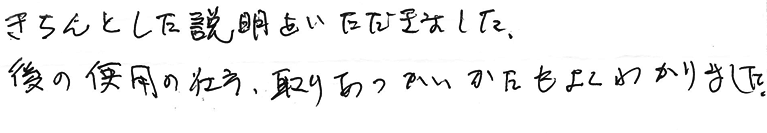 きちんとした説明をいただきました、
後の使用の仕方、取りあつかいかたもよくわかりました。